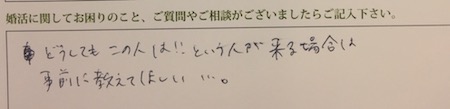 婚活に関してお困りのこと、ご質問やご相談がございましたらご記入下さい。
どうしてもこの人は!!という人が来る場合は
事前に教えてほしい…。